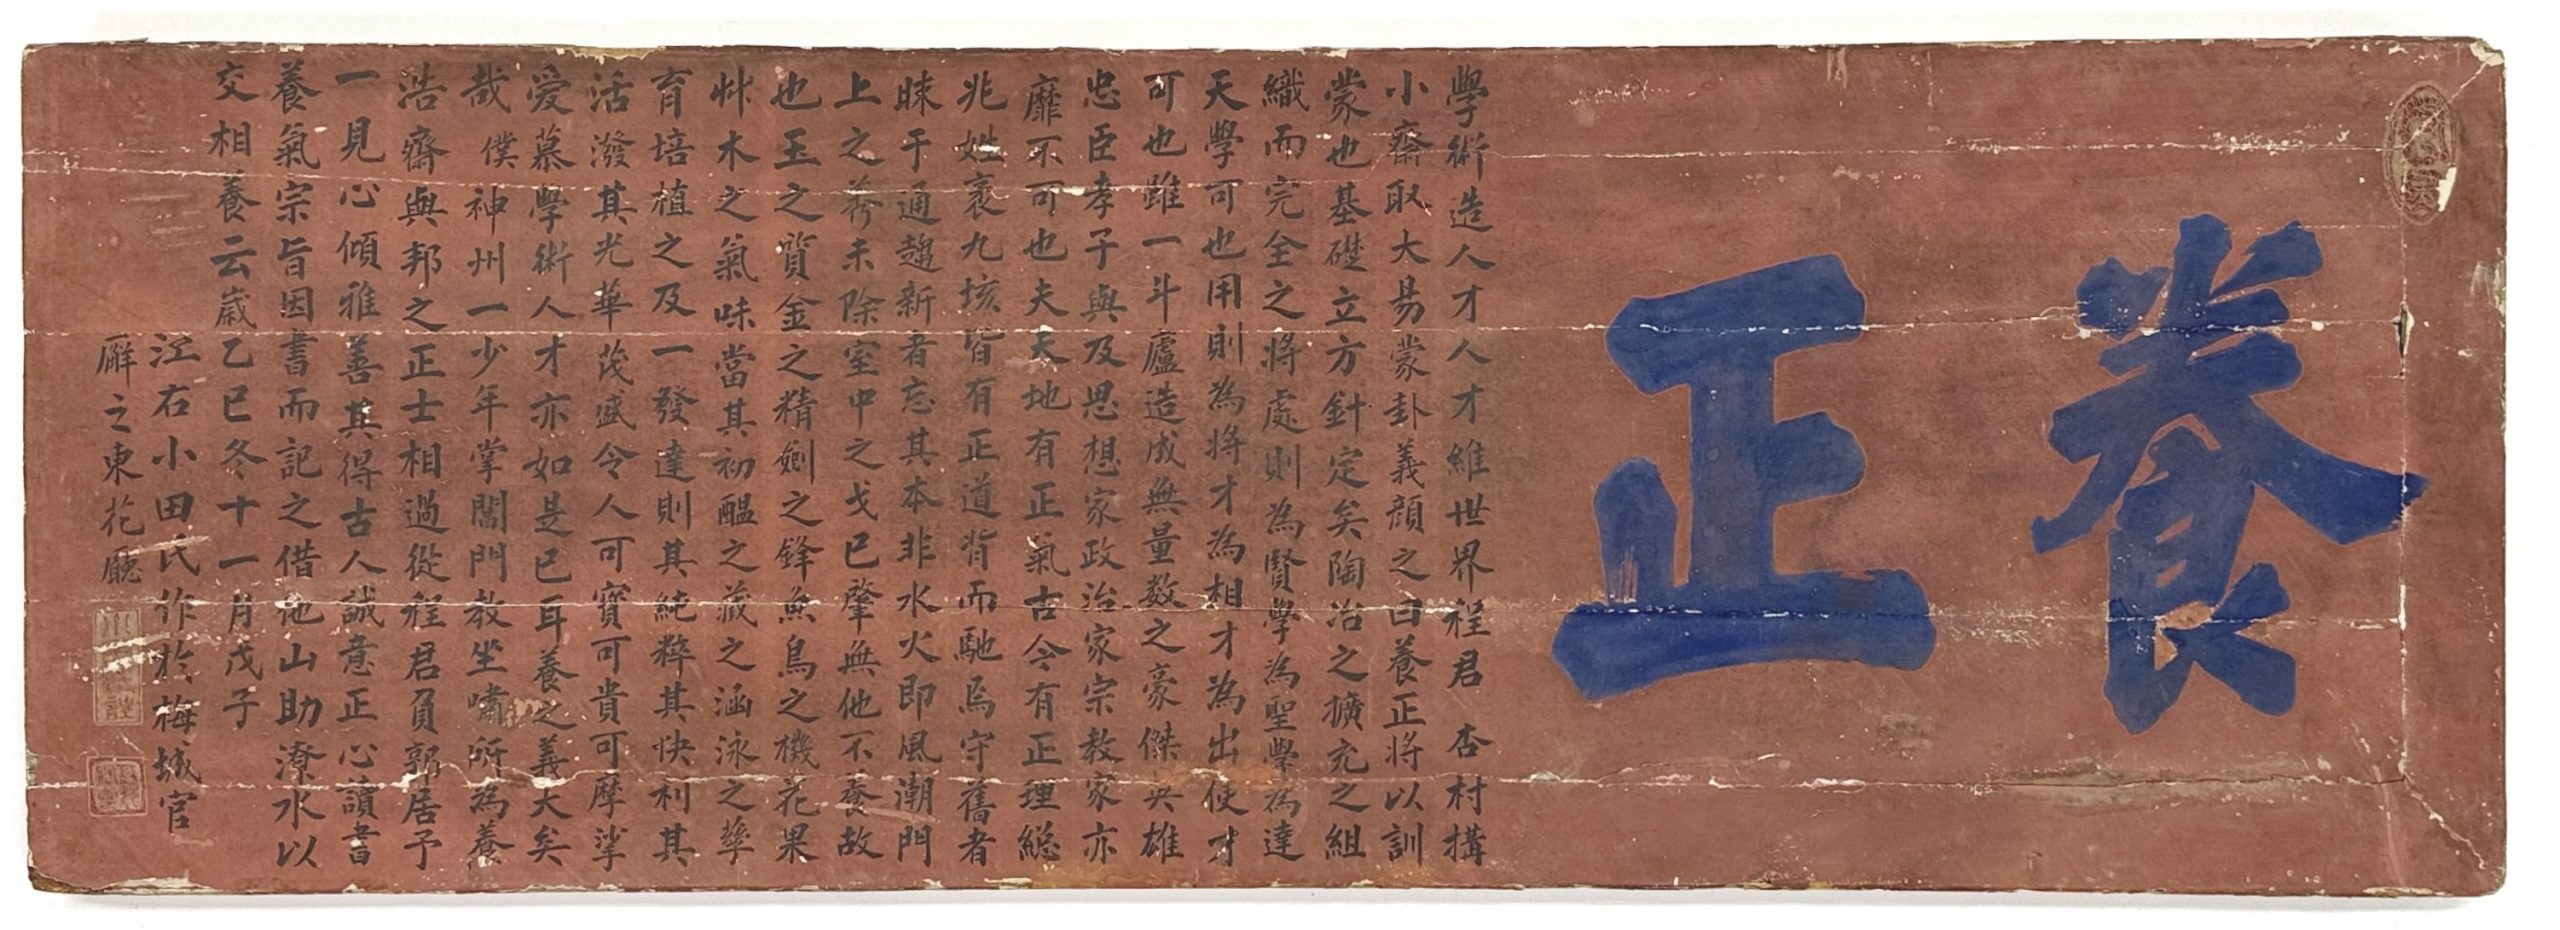 養正
學術造人才人才維世界程君杏村搆
小齋取大易蒙卦義顏之曰養正將以訓
蒙也基礎立方針定矣陶冶之擴充之組
織而完全之將處則為賢學為聖學為達
天學可也用則為將才為相才為出使才
可也雖一斗廬造成無量数之豪傑英雄
忠臣孝子與及思想家政治家宗教家亦
靡不可也夫天地有正氣古今有正理總
兆姓裹九垓皆有正道背而馳焉守舊者
昧于通趨新者忘其本非水火即風潮門
上之莠未除室中之戈已肇無他不養故
也玉之質金之精劍之鋒魚鳥之機花果
艸木之氣味當其初醖之藏之涵泳之孳
育培植之及一發達則其純粹其快利其
活潑其光華茂盛令人可寶可貴可摩挲
愛慕學術人才亦如是已耳養之義大矣
哉僕神州一少年掌閽門教坐嘯所為養
浩齋與邦之正士相過從程君負郭居予
一見心傾雅善其得古人誠意正心讀書
養氣宗旨因書而記之借他山助潦水以
交相養云歲乙巳冬十一月戊子
江右小田氏作於梅城官
廨之東花廳